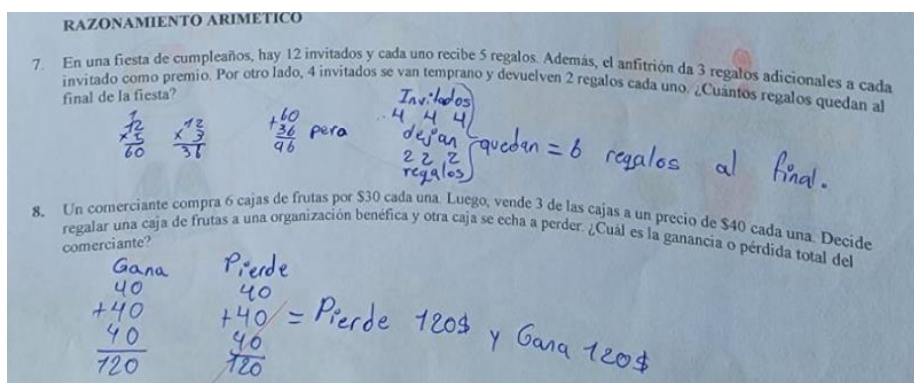 RAZONAMIENTO ARIMETICO
7. En una fiesta de cumpleaños, hay 12 invitados y cada uno recibe 5 regalos. Además, el anfitrión da 3 regalos adicionales a cada
invitado como premio. Por otro lado, 4 invitados se van temprano y devuelven 2 regalos cada uno. ¿Cuántos regalos quedan al
final de la fiesta?
1
12
x 5
60
12
x 3
36
+60
36
96
pera
Invitados
4 4 4
dejan
2 2 2
regalos
quedan = 6 regalos al final.
8. Un comerciante compra 6 cajas de frutas por $30 cada una. Luego, vende 3 de las cajas a un precio de $40 cada una. Decide
regalar una caja de frutas a una organización benéfica y otra caja se echa a perder. ¿Cuál es la ganancia o pérdida total del
comerciante?
Gana
40
+40
40
120
Pierde
40
+40
40
120
= Pierde 120$ y Gana 120$